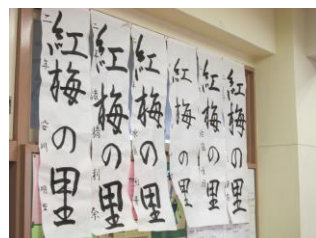 紅梅の里
紅梅の里
紅梅の里
紅梅の里
紅梅の里
紅梅の里